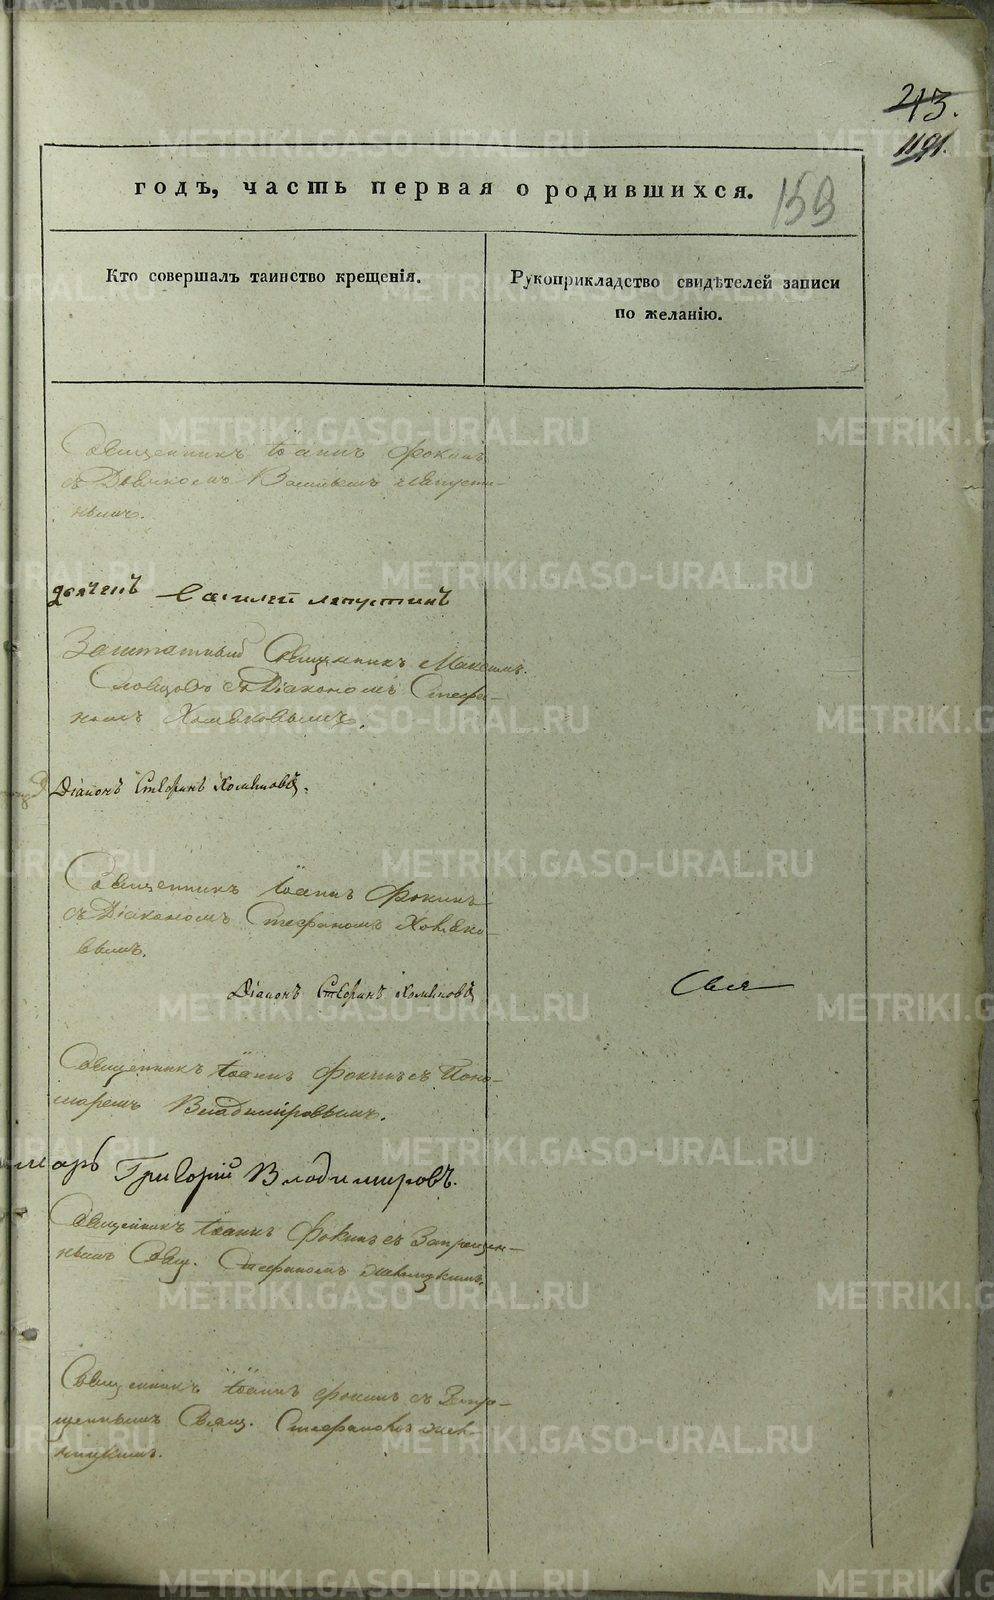 43.
1191.
годъ, часть первая о родившихся.
159
Кто совершалъ таинство крещенія.
Рукоприкладство свидѣтелей записи
по желанію.
Священникъ Іоаннъ Фокинъ
съ Дьячкомъ Васильемъ Лапусти-
нымъ.
дьячекъ Василей Лапустинъ
Заштатный Священникъ Максимъ
Словцовъ съ Діакономъ Стефа-
номъ Хомяковымъ.
Діаконъ Стефанъ Хомяковъ.
Священникъ Іоаннъ Фокинъ
съ Діакономъ Стефаномъ Хомяко-
вымъ.
Діаконъ Стефанъ Хомяковъ
Священникъ Іоаннъ Фокинъ съ Поно-
маремъ Владиміровымъ.
марь Григорій Владимировъ.
Священникъ Іоаннъ Фокинъ съ Запрещен-
нымъ Свящ. Стефаномъ
Священникъ Іоаннъ Фокинъ съ Запре-
щеннымъ Свящ. Стефаномъ
METRIKI.GASO-URAL.RU